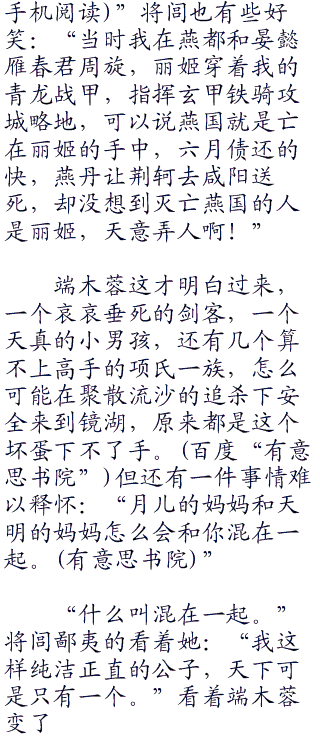 手机阅读)”将闾也有些好
笑：“当时我在燕都和晏懿
雁春君周旋，丽姬穿着我的
青龙战甲，指挥玄甲铁骑攻
城略地，可以说燕国就是亡
在丽姬的手中，六月债还的
快，燕丹让荆轲去咸阳送
死，却没想到灭亡燕国的人
是丽姬，天意弄人啊！”
端木蓉这才明白过来，
一个哀哀垂死的剑客，一个
天真的小男孩，还有几个算
不上高手的项氏一族，怎么
可能在聚散流沙的追杀下安
全来到镜湖，原来都是这个
坏蛋下不了手。(百度“有意
思书院”)但还有一件事情难
以释怀：“月儿的妈妈和天
明的妈妈怎么会和你混在一
起。(有意思书院)”
“什么叫混在一起。”
将闾鄙夷的看着她：“我这
样纯洁正直的公子，天下可
是只有一个。”看着端木蓉
变了